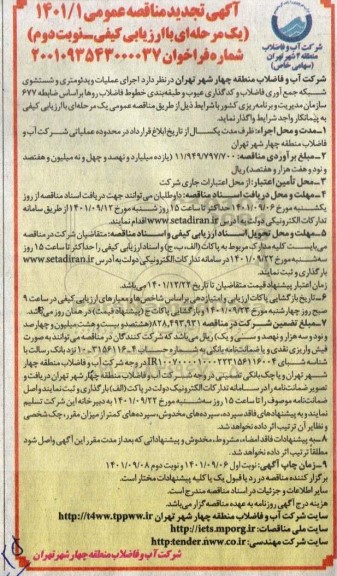 آگهی تجدید مناقصه عمومی ۱۴۰۱/۱
(یک مرحله‌ای با ارزیابی کیفی-نوبت دوم)
شماره فراخوان ۲۰۰۱۰۹۳۵۴۳۰۰۰۰۳۷
شرکت آب و فاضلاب
منطقه ۴ شهر تهران
(سهامی خاص)
شرکت آب و فاضلاب منطقه چهار شهر تهران در نظر دارد اجرای عملیات ویدئومتری و شستشوی
شبکه جمع آوری فاضلاب و کدگذاری عیوب و طبقه‌بندی خطوط فاضلاب روها بر اساس ضابطه ۶۷۷
سازمان مدیریت و برنامه ریزی کشور با شرایط ذیل از طریق مناقصه عمومی یک مرحله‌ای با ارزیابی کیفی
به پیمانکار واجد شرایط واگذار نماید.
۱-مدت و محل اجراء: ظرف مدت یکسال از تاریخ ابلاغ قرارداد در محدوده عملیاتی شرکت آب و
فاضلاب منطقه چهار شهر تهران
۲-مبلغ برآوردی مناقصه: ۱۱/۹۴۹/۷۹۷/۷۰۰ (یازده میلیارد و نهصد و چهل و نه میلیون و هفتصد
و نود و هفت هزار و هفتصد) ریال
۳-محل تأمین اعتبار: از محل اعتبارات جاری شرکت
۴-مهلت و محل دریافت اسناد مناقصه: داوطلبان می توانند جهت دریافت اسناد مناقصه از روز
یکشنبه مورخ ۱۴۰۱/۰۹/۰۶ حداکثر تا ساعت ۱۵ روز شنبه مورخ ۱۴۰۱/۰۹/۱۲ از طریق سامانه
تدارکات الکترونیکی دولت به آدرس www.setadiran.ir اقدام نمایند.
۵-مهلت و محل تحویل اسناد ارزیابی کیفی و اسناد مناقصه: متقاضیان شرکت در مناقصه
می‌بایست کلیه مدارک مربوط به پاکات (الف، ب، ج) و اسناد ارزیابی کیفی را حداکثر تا ساعت ۱۵ روز
سه‌شنبه مورخ ۱۴۰۱/۰۹/۲۲ در سامانه تدارکات الکترونیکی دولت به آدرس www.setadiran.ir
بارگذاری و ثبت نمایند.
زمان اعتبار پیشنهاد قیمت متقاضیان تا تاریخ ۱۴۰۱/۱۲/۲۲ می‌باشد.
۶-تاریخ بازگشایی پاکات ارزیابی و امتیازدهی بر اساس شاخص‌ها و معیارهای ارزیابی کیفی در ساعت ۹
صبح روز چهارشنبه مورخ ۱۴۰۱/۰۹/۲۳ و بازگشایی پاکات ج (پیشنهاد قیمت) در همان روز می‌باشد.
۷-مبلغ تضمین شرکت در مناقصه ۸۲۸,۴۹۳,۹۳۱ (هشتصد و بیست و هشت میلیون و چهارصد
و نود و سه هزار و نهصد و سی و یک) ریال می‌باشد که شرکت کنندگان در مناقصه می‌توانند به صورت
فیش واریزی نقدی و یا ضمانت‌نامه بانکی به شماره حساب نزد بانک رسالت با
شناسه شبای در وجه شرکت آب و فاضلاب منطقه چهار
شهر تهران و یا چک بانکی تضمینی در وجه شرکت آب و فاضلاب منطقه چهار شهر تهران دریافت و
تصویر ضمانت‌نامه را در سامانه تدارکات الکترونیک دولت در پاکت (الف) بارگذاری و ثبت نمایند و اصل
ضمانت‌نامه موصوف را تا ساعت ۱۵ روز سه‌شنبه مورخ ۱۴۰۱/۰۹/۲۲ به دبیرخانه این شرکت تسلیم
نمایند و به پیشنهادهای فاقد سپرده، سپرده‌های مخدوش، سپرده‌های کمتر از میزان مقرر، چک شخصی
و نظایر آن ترتیب اثر داده نخواهد شد.
۸-به پیشنهادات فاقد امضاء، مشروط، مخدوش و پیشنهاداتی که بعد از مدت مقرر این آگهی واصل شود
مطلقا ترتیب اثر داده نخواهد شد.
۹-زمان چاپ آگهی: نوبت اول ۱۴۰۱/۰۹/۰۶ و نوبت دوم ۱۴۰۱/۰۹/۰۸
برگزار کننده مناقصه در رد یا قبول یک یا کلیه پیشنهادات مختار است.
سایر اطلاعات و جزئیات در اسناد مناقصه مندرج است.
هزینه درج آگهی روزنامه به عهده مناقصه گزار می‌باشد.
سایت شرکت آب و فاضلاب منطقه چهار شهر تهران http://t4ww.tppww.ir
سایت ملی مناقصات: http://iets.mporg.ir
سایت شرکت مهندسی: http:tender.nww.co.ir
شرکت آب و فاضلاب منطقه چهار شهر تهران